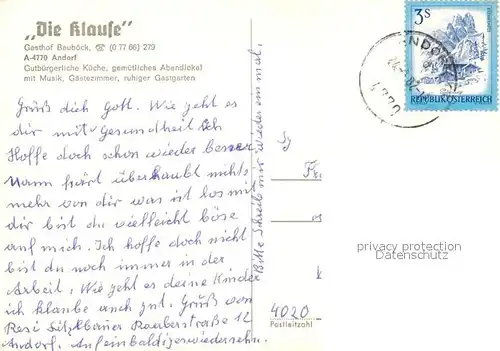 „Die Klause“
Gasthof Bauböck, ☎ (0 77 66) 279
A-4770 Andorf
Gutbürgerliche Küche, gemütliches Abendlokal
mit Musik, Gästezimmer, ruhiger Gastgarten
Grüß dich Gott. Wie geht es
dir mit Gesundheit ich
Hoffe doch schon wieder besser
Mann hört überhaubt nichts
mehr von dir was ist los mit
dir bist du vielleicht böse
auf mich. Ich hoffe doch nicht
bist du noch immer in der
Arbeit. Wie geht es deine Kinder
ich klaube auch gut. Gruß von
Resi Raaberstraße 12
Andorf. Auf ein baldiges wiedersehn.
Bitte Schreib mir wieder ein mal.
3S
REPUBLIK ÖSTERREICH
4020
Postleitzahl
privacy protection
Datenschutz